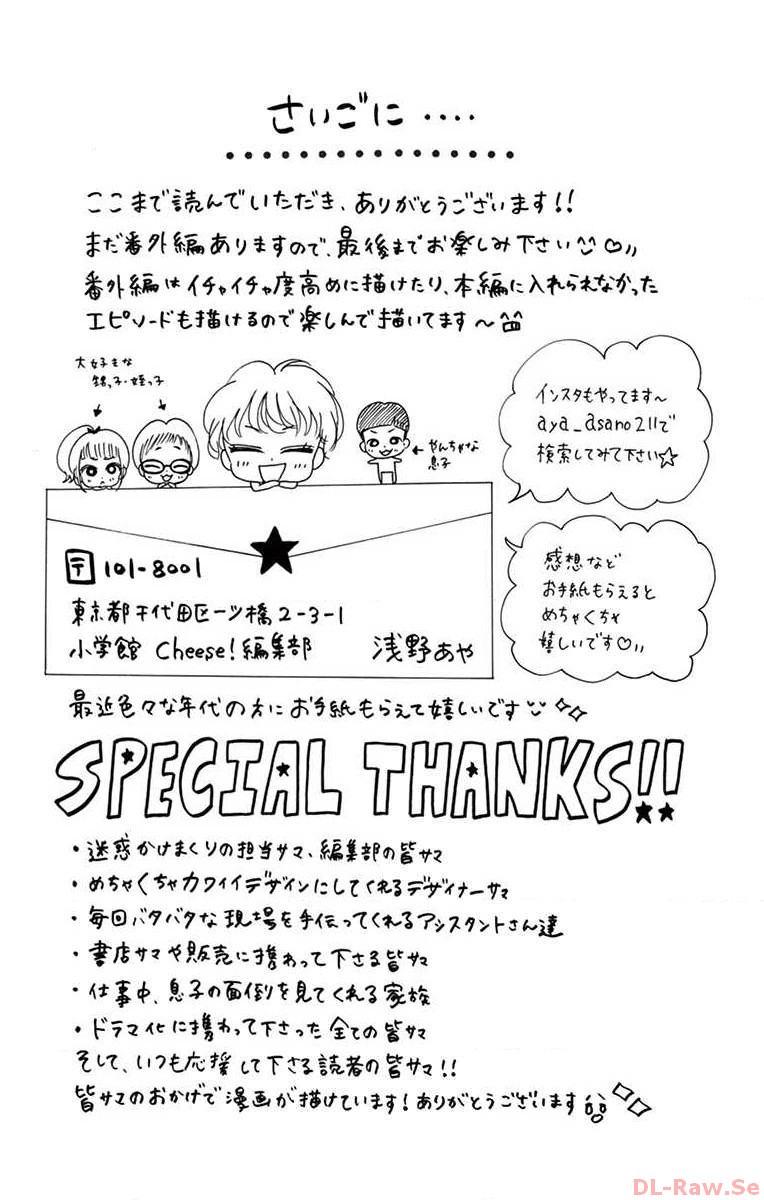 さいごに‥‥
ここまで読んでいただき、ありがとうございます!!
まだ番外編ありますので、最後までお楽しみ下さい♡〃
番外編はイチャイチャ度高めに描けたり、本編に入れられなかった
エピソードも描けるので楽しんで描いてます〜
大好きな
甥っ子・姪っ子
やんちゃな
息子
インスタもやってます〜
aya_asano211で
検索してみて下さい☆
〒101-8001
東京都千代田区一ツ橋2-3-1
小学館 Cheese!編集部 浅野あや
感想など
お手紙もらえると
めちゃくちゃ
嬉しいです♡〃
最近色々な年代の方にお手紙もらえて嬉しいです
SPECIAL THANKS!!
・迷惑かけまくりの担当サマ、編集部の皆サマ
・めちゃくちゃカワイイデザインにしてくれるデザイナーサマ
・毎回バタバタな現場を手伝ってくれるアシスタントさん達
・書店サマや販売に携わって下さる皆サマ
・仕事中、息子の面倒を見てくれる家族
・ドラマ化に携わって下さった全ての皆サマ
そして、いつも応援して下さる読者の皆サマ!!
皆サマのおかげで漫画が描けています!ありがとうございます
DL-Raw.Se